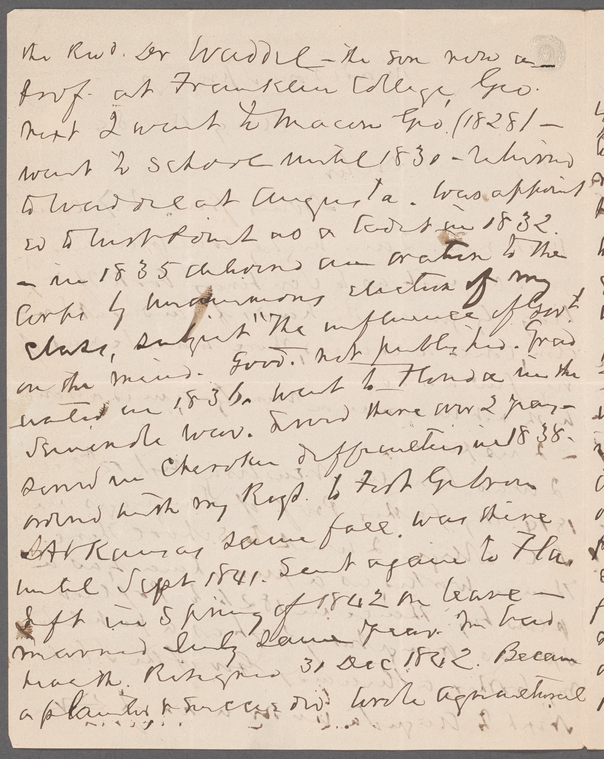 the Revd. Dr Waddel - the son now a
Prof. at Franklin College, Geo.
next I went to Macon Geo. (1828) -
went to school until 1830 - returned
to Waddel at Augusta. was appoint
ed to West Point as a Cadet in 1832.
- in 1835 delivered an oration to the
Corps by unanimous election of my
class, subject "The influence of Govt
on the mind. Good. not published. Grad
uated in 1836. went to Florida in the
Seminole War. Served there over 2 years -
served in Cherokee difficulties in 1838.
ordered with my Regt. to Fort Gibson
Arkansas same fall. was there
until Sept 1841. Sent again to Fla.
left in Spring of 1842 on leave -
married July same year. In bad
health. Resigned 31 Dec 1842. Became
a planter & succeeded. wrote agricultural